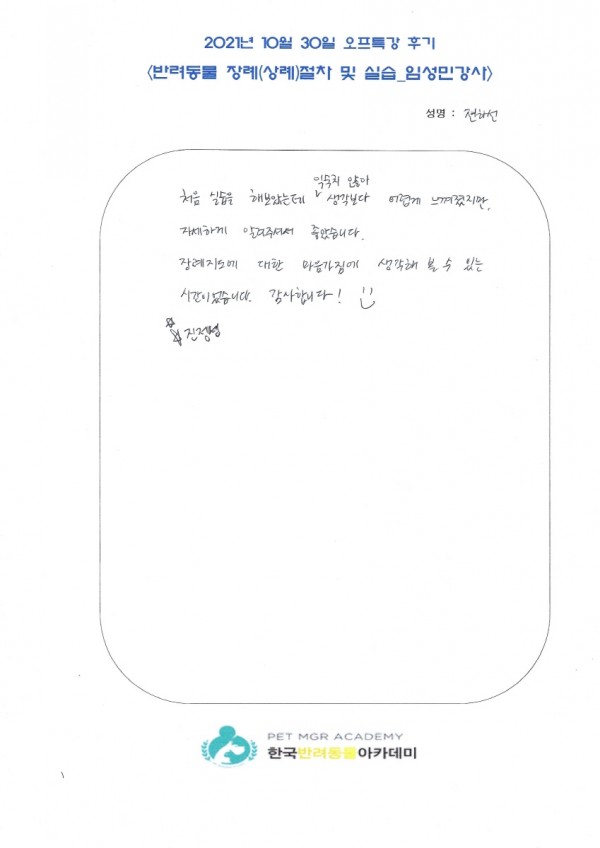 2021년 10월 30일 오프특강 후기
<반려동물 장례(상례)절차 및 실습_임성민강사>
성명 : 전하선
익숙치 않아
처음 실습을 해보았는데 ∨ 생각보다 어렵게 느껴졌지만,
자세하게 알려주셔서 좋았습니다.
장례지도에 대한 마음가짐에 생각해 볼 수 있는
시간이었습니다. 감사합니다! :)
☆☆진정성
PET MGR ACADEMY
한국반려동물아카데미